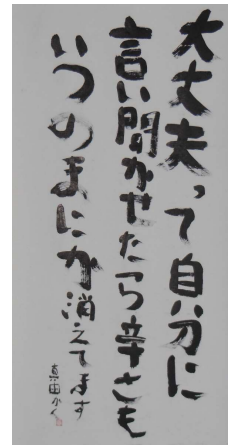 大丈夫って自分に
言い聞かせたら辛さも
いつのまにか消えてます